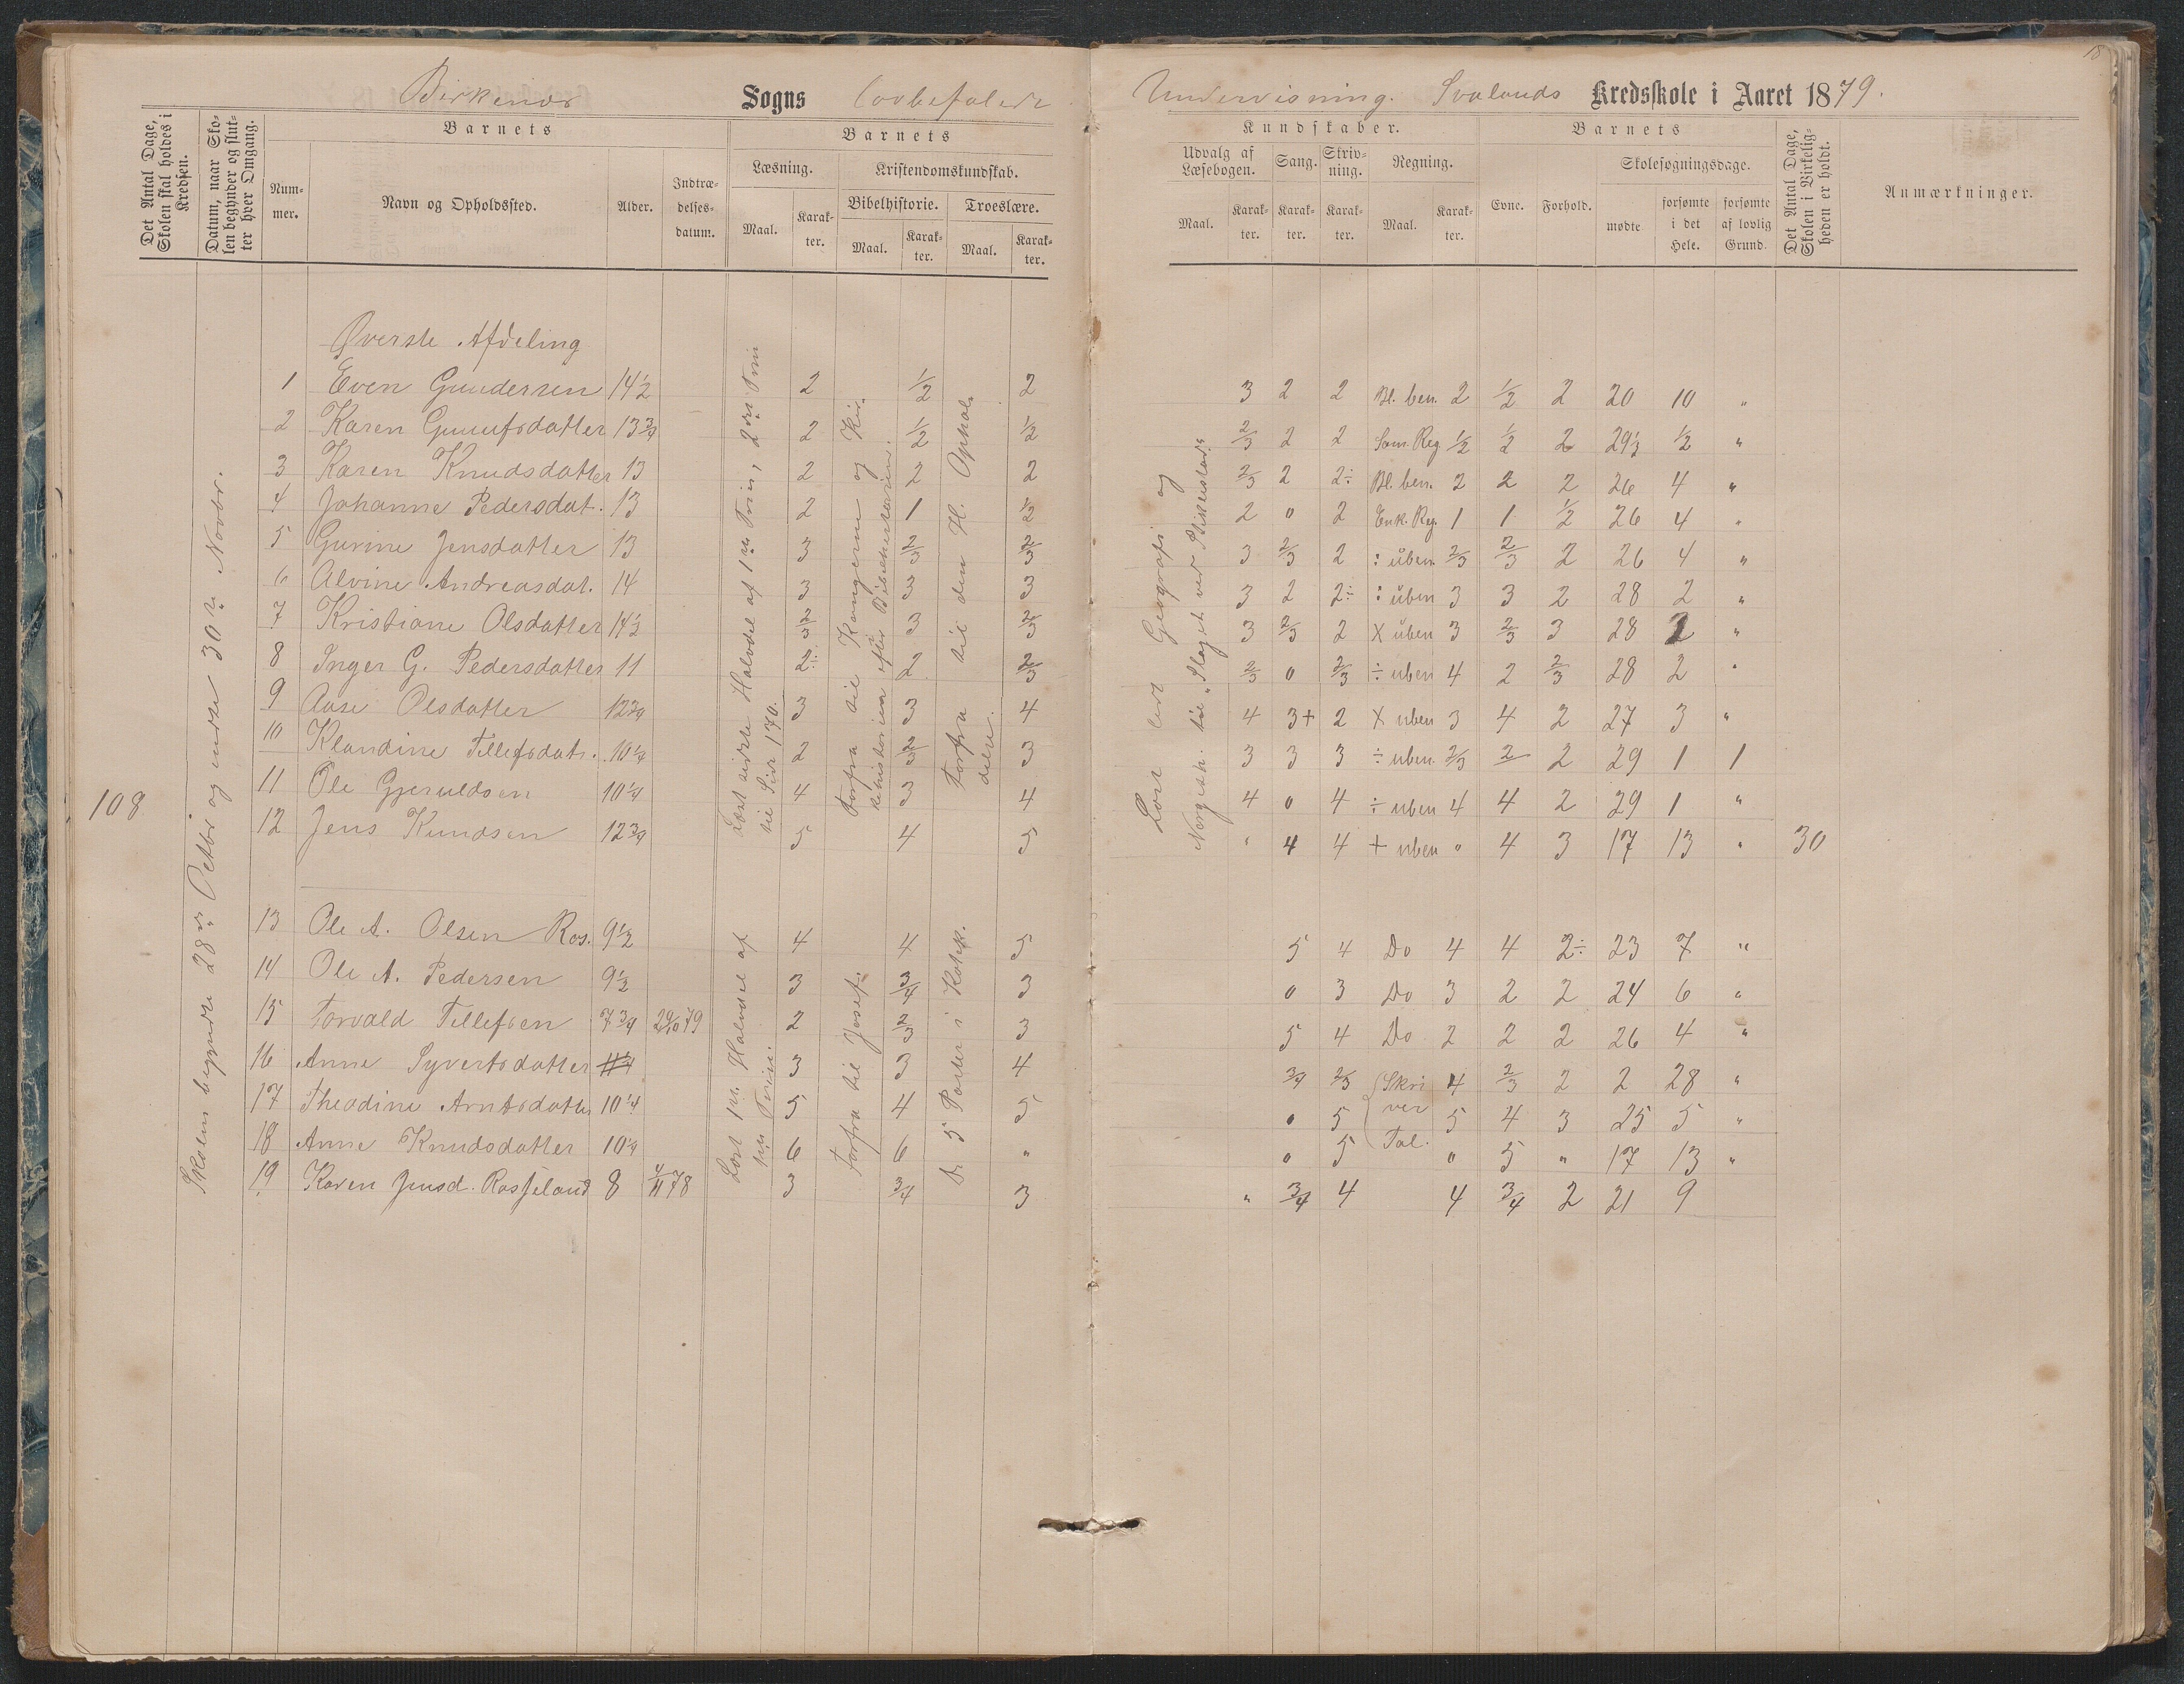 18
Birkenæs Sogns lovbefalede Undervisning. Svalands Kredsskole i Aaret 1879.
Det Antal Dage, Skolen skal holdes i Kredsen.
Datum, naar Skolen begynder og slutter hver Omgang.
Barnets
Nummer.
Navn og Opholdssted.
Alder.
Indtrædelsesdatum.
Barnets
Læsning.
Maal.
Karakter.
Kristendomskundskab.
Bibelhistorie.
Maal.
Karakter.
Troeslære.
Maal.
Karakter.
Kundskaber.
Udvalg af Læsebogen.
Maal.
Karakter.
Sang.
Karakter.
Skrivning.
Karakter.
Regning.
Maal.
Karakter.
Barnets
Evne.
Forhold.
Skolesøgningsdage.
mødte
forsømte i det Hele.
forsømte af lovlig Grund.
Det Antal Dage, Skolen i Virkeligheden er holdt.
Anmærkninger.
108
Skolen begyndte 28de Octbr og endte 30te Novbr.
Øverste Afdeling
Læst sidste Halvdel af 1ste Trin, 2det Trin til Side 170.
Forfra til Kongerne og Kirkehistorien efter Bibelhistorien.
Forfra til den H. Aands Ophold
Lært lidt Geografi og Norgesh. til "Slaget ved Stiklestad"
1 Even Gundersen 14½ 2 ½ 2 3 2 2 Bl. ben. 2 ½ 2 20 10 "
2 Karen Gunufsdatter 13¾ 2 ½ ½ 2/3 2 2 Sam. Reg ½ ½ 2 29½ ½ "
3 Karen Knudsdatter 13 2 2 2 2/3 2 2÷ Bl. ben. 2 2 2 26 4 "
4 Johanne Pedersdat. 13 2 1 ½ 2 0 2 Enk. Reg. 1 1 ½ 26 4 "
5 Gurine Jensdatter 13 3 2/3 2/3 3 2/3 2 : uben. 2/3 2/3 2 26 4 "
6 Alvine Andreasdat. 14 3 3 3 3 2 2÷ : uben 3 3 2 28 2 "
7 Kristiane Olsdatter 14½ 2/3 3 2/3 3 2/3 2 X uben 3 2/3 3 28 2 "
8 Inger G. Pedersdatter 11 2÷ 2 2/3 2/3 0 2/3 ÷ uben 4 2 2/3 28 2 "
9 Aase Olsdatter 12¾ 3 3 4 4 3+ 2 X uben 3 4 2 27 3 "
10 Klaudine Tellefsdatr. 10¼ 2 2/3 3 3 3 3 ÷ uben. 2/3 2 2 29 1 1
11 Ole Gjeruldsen 10¼ 4 3 4 4 0 4 ÷ uben 4 4 2 29 1 "
12 Jens Knudsen 12¾ 5 4 5 " 4 4 + uben " 4 3 17 13 " 30
Læst 1ste Halvdel af 1ste Trin.
Forfra til Josef.
De 5 Parter i Katek.
13 Ole A. Olsen Ros. 9½ 4 4 5 5 4 Do 4 4 2÷ 23 7 "
14 Ole A. Pedersen 9½ 3 ¾ 3 0 3 Do 3 2 2 24 6 "
15 Torvald Tellefsen 7¾ 29/10 79 2 2/3 3 5 4 Do 2 2 2 26 4 "
16 Anne Syvertsdatter 11¼ 3 3 4 ¾ 2/3 Skri 4 2/3 2 2 28 "
17 Theodine Arntsdatter 10¼ 5 4 5 0 5 ver 5 4 3 25 5 "
18 Anne Knudsdatter 10¼ 6 6 " 0 5 Tal. 0 5 " 17 13 "
19 Karen Jensd. Rosseland 8 4/11 78 3 ¾ 3 " ¾ 4 4 ¾ 2 21 9